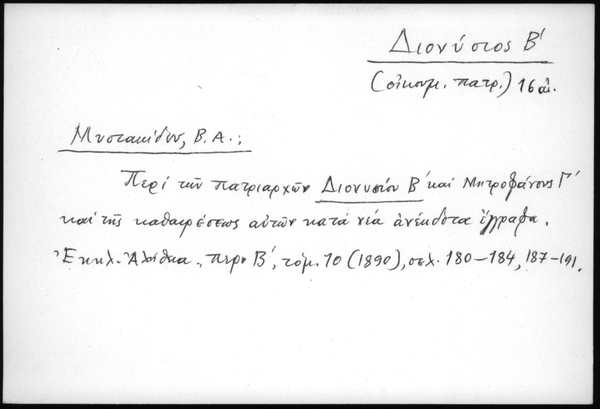 Διονύσιος Β΄
(οἰκουμ. πατρ.) 16 αἰ.
Μυστακίδου, Β. Α.:
Περί τῶν πατριαρχῶν Διονυσίου Β΄ καί Μητροφάνους Γ΄
καί τῆς καθαιρέσεως αὐτῶν κατά νέα ἀνέκδοτα ἔγγραφα.
Ἐκκλ. Ἀλήθεια, περ. Β΄, τόμ. 10 (1890), σελ. 180-184, 187-191.